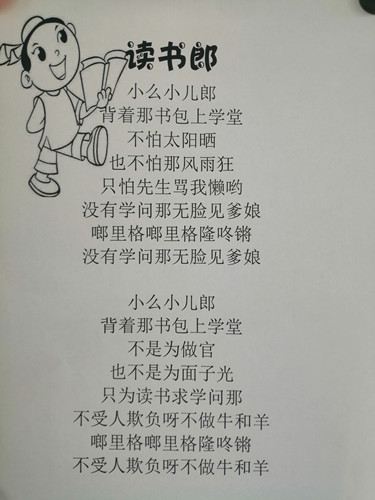 读书郎
小么小儿郎
背着那书包上学堂
不怕太阳晒
也不怕那风雨狂
只怕先生骂我懒哟
没有学问那无脸见爹娘
啷里格啷里格隆咚锵
没有学问那无脸见爹娘
小么小儿郎
背着那书包上学堂
不是为做官
也不是为面子光
只为读书求学问那
不受人欺负呀不做牛和羊
啷里格啷里格隆咚锵
不受人欺负呀不做牛和羊